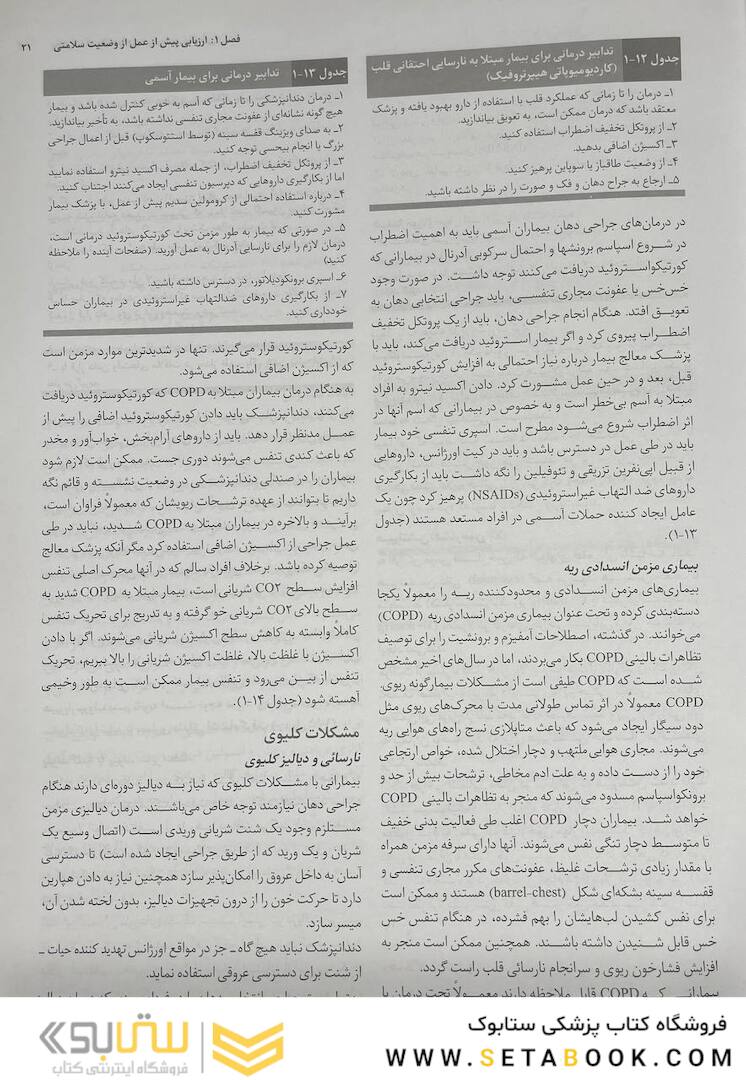 فصل ۱: ارزیابی پیش از عمل از وضعیت سلامتی ۲۱
جدول ۱۲-۱ تدابیر درمانی برای بیمار مبتلا به نارسایی احتقانی قلب
(کاردیومیوپاتی هیپرتروفیک)
۱ـ درمان را تا زمانی که عملکرد قلب با استفاده از دارو بهبود یافته و پزشک
معتقد باشد که درمان ممکن است، به تعویق بیاندازید.
۲ـ از پروتکل تخفیف اضطراب استفاده کنید.
۳ـ اکسیژن اضافی بدهید.
۴ـ از وضعیت طاقباز یا سوپاین پرهیز کنید.
۵ـ ارجاع به جراح دهان و فک و صورت را در نظر داشته باشید.
در درمان‌های جراحی دهان بیماران آسمی باید به اهمیت اضطراب
در شروع اسپاسم برونشها و احتمال سرکوبی آدرنال در بیمارانی که
کورتیکواستروئید دریافت می‌کنند توجه داشت. در صورت وجود
خس‌خس یا عفونت مجاری تنفسی، باید جراحی انتخابی دهان به
تعویق افتد. هنگام انجام جراحی دهان، باید از یک پروتکل تخفیف
اضطراب پیروی کرد و اگر بیمار استروئید دریافت می‌کند، باید با
پزشک معالج بیمار درباره نیاز احتمالی به افزایش کورتیکوستروئید
قبل، بعد و در حین عمل مشورت کرد. دادن اکسید نیترو به افراد
مبتلا به آسم بی‌خطر است و به خصوص در بیمارانی که اسم آنها در
اثر اضطراب شروع می‌شود مطرح است. اسپری تنفسی خود بیمار
باید در طی عمل در دسترس باشد و باید در کیت اورژانس، داروهایی
از قبیل اپی‌نفرین تزریقی و تئوفیلین را نگه داشت باید از بکارگیری
داروهای ضد التهاب غیراستروئیدی (NSAIDs) پرهیز کرد چون یک
عامل ایجاد کننده حملات آسمی در افراد مستعد هستند (جدول
۱۳-۱).
بیماری مزمن انسدادی ریه
بیماری‌های مزمن انسدادی و محدودکننده ریه را معمولاً یکجا
دسته‌بندی کرده و تحت عنوان بیماری مزمن انسدادی ریه (COPD)
می‌خوانند. در گذشته، اصطلاحات آمفیزم و برونشیت را برای توصیف
تظاهرات بالینی COPD بکار می‌بردند، اما در سال‌های اخیر مشخص
شده است که COPD طیفی است از مشکلات بیمارگونه ریوی.
COPD معمولاً در اثر تماس طولانی مدت با محرک‌های ریوی مثل
دود سیگار ایجاد می‌شود که باعث متاپلازی نسج راه‌های هوایی ریه
می‌شوند. مجاری هوایی ملتهب و دچار اختلال شده، خواص ارتجاعی
خود را از دست داده و به علت ادم مخاطی، ترشحات بیش از حد و
برونکواسپاسم مسدود می‌شوند که منجر به تظاهرات بالینی COPD
خواهد شد. بیماران دچار COPD اغلب طی فعالیت بدنی خفیف
تا متوسط دچار تنگی نفس می‌شوند. آنها دارای سرفه مزمن همراه
با مقدار زیادی ترشحات غلیظ، عفونت‌های مکرر مجاری تنفسی و
قفسه سینه بشکه‌ای شکل (barrel-chest) هستند و ممکن است
برای نفس کشیدن لب‌هایشان را بهم فشرده، در هنگام تنفس خس
خس قابل شنیدن داشته باشند. همچنین ممکن است منجر به
افزایش فشارخون ریوی و سرانجام نارسائی قلب راست گردد.
بیمارانی که COPD قابل ملاحظه دارند معمولاً تحت درمان با
جدول ۱۳-۱ تدابیر درمانی برای بیمار آسمی
۱ـ درمان دندانپزشکی را تا زمانی که آسم به خوبی کنترل شده باشد و بیمار
هیچ گونه نشانه‌ای از عفونت مجاری تنفسی نداشته باشد، به تأخیر بیاندازید.
۲ـ به صدای ویزینگ قفسه سینه (توسط استتوسکوپ) قبل از اعمال جراحی
بزرگ یا انجام بیحسی توجه کنید.
۳ـ از پروتکل تخفیف اضطراب، از جمله مصرف اکسید نیترو استفاده نمایید
اما از بکارگیری داروهایی که دپرسیون تنفسی ایجاد می‌کنند اجتناب کنید.
۴ـ درباره استفاده احتمالی از کرومولین سدیم پیش از عمل، با پزشک بیمار
مشورت کنید.
۵ـ در صورتی که بیمار به طور مزمن تحت کورتیکوستروئید درمانی است،
درمان لازم را برای نارسایی آدرنال به عمل آورید. (صفحات آینده را ملاحظه
کنید)
۶ـ اسپری برونکودیلاتور، در دسترس داشته باشید.
۷ـ از بکارگیری داروهای ضدالتهاب غیراستروئیدی در بیماران حساس
خودداری کنید.
کورتیکوستروئید قرار می‌گیرند. تنها در شدیدترین موارد مزمن است
که از اکسیژن اضافی استفاده می‌شود.
به هنگام درمان بیماران مبتلا به COPD که کورتیکوستروئید دریافت
می‌کنند، دندانپزشک باید دادن کورتیکوستروئید اضافی را پیش از
عمل مدنظر قرار دهد. باید از داروهای آرام‌بخش، خواب‌آور و مخدر
که باعث کندی تنفس می‌شوند دوری جست. ممکن است لازم شود
بیماران را در صندلی دندانپزشکی در وضعیت نشسته و قائم نگه
داریم تا بتوانند از عهده ترشحات ریویشان که معمولاً فراوان است،
برآیند و بالاخره در بیماران مبتلا به COPD شدید، نباید در طی
عمل جراحی از اکسیژن اضافی استفاده کرد مگر آنکه پزشک معالج
توصیه کرده باشد. برخلاف افراد سالم که در آنها محرک اصلی تنفس
افزایش سطح CO۲ شریانی است، بیمار مبتلا به COPD شدید به
سطح بالای CO۲ شریانی خو گرفته و به تدریج برای تحریک تنفس
کاملاً وابسته به کاهش سطح اکسیژن شریانی می‌شوند. اگر با دادن
اکسیژن با غلظت بالا، غلظت اکسیژن شریانی را بالا ببریم، تحریک
تنفس از بین می‌رود و تنفس بیمار ممکن است به طور وخیمی
آهسته شود (جدول ۱۴-۱).
مشکلات کلیوی
نارسائی و دیالیز کلیوی
بیمارانی با مشکلات کلیوی که نیاز به دیالیز دوره‌ای دارند هنگام
جراحی دهان نیازمند توجه خاص می‌باشند. درمان دیالیزی مزمن
مستلزم وجود یک شنت شریانی وریدی است (اتصال وسیع یک
شریان و یک ورید که از طریق جراحی ایجاد شده است) تا دسترسی
آسان به داخل عروق را امکان‌پذیر سازد همچنین نیاز به دادن هپارین
دارد تا حرکت خون را از درون تجهیزات دیالیز، بدون لخته شدن آن،
میسر سازد.
دندانپزشک نباید هیچ گاه ـ جز در مواقع اورژانس تهدید کننده حیات ـ
از شنت برای دسترسی عروقی استفاده نماید.
فروشگاه کتاب پزشکی ستابوک
WWW.SETABOOK.COM
ستابوک
فروشگاه اینترنتی کتاب